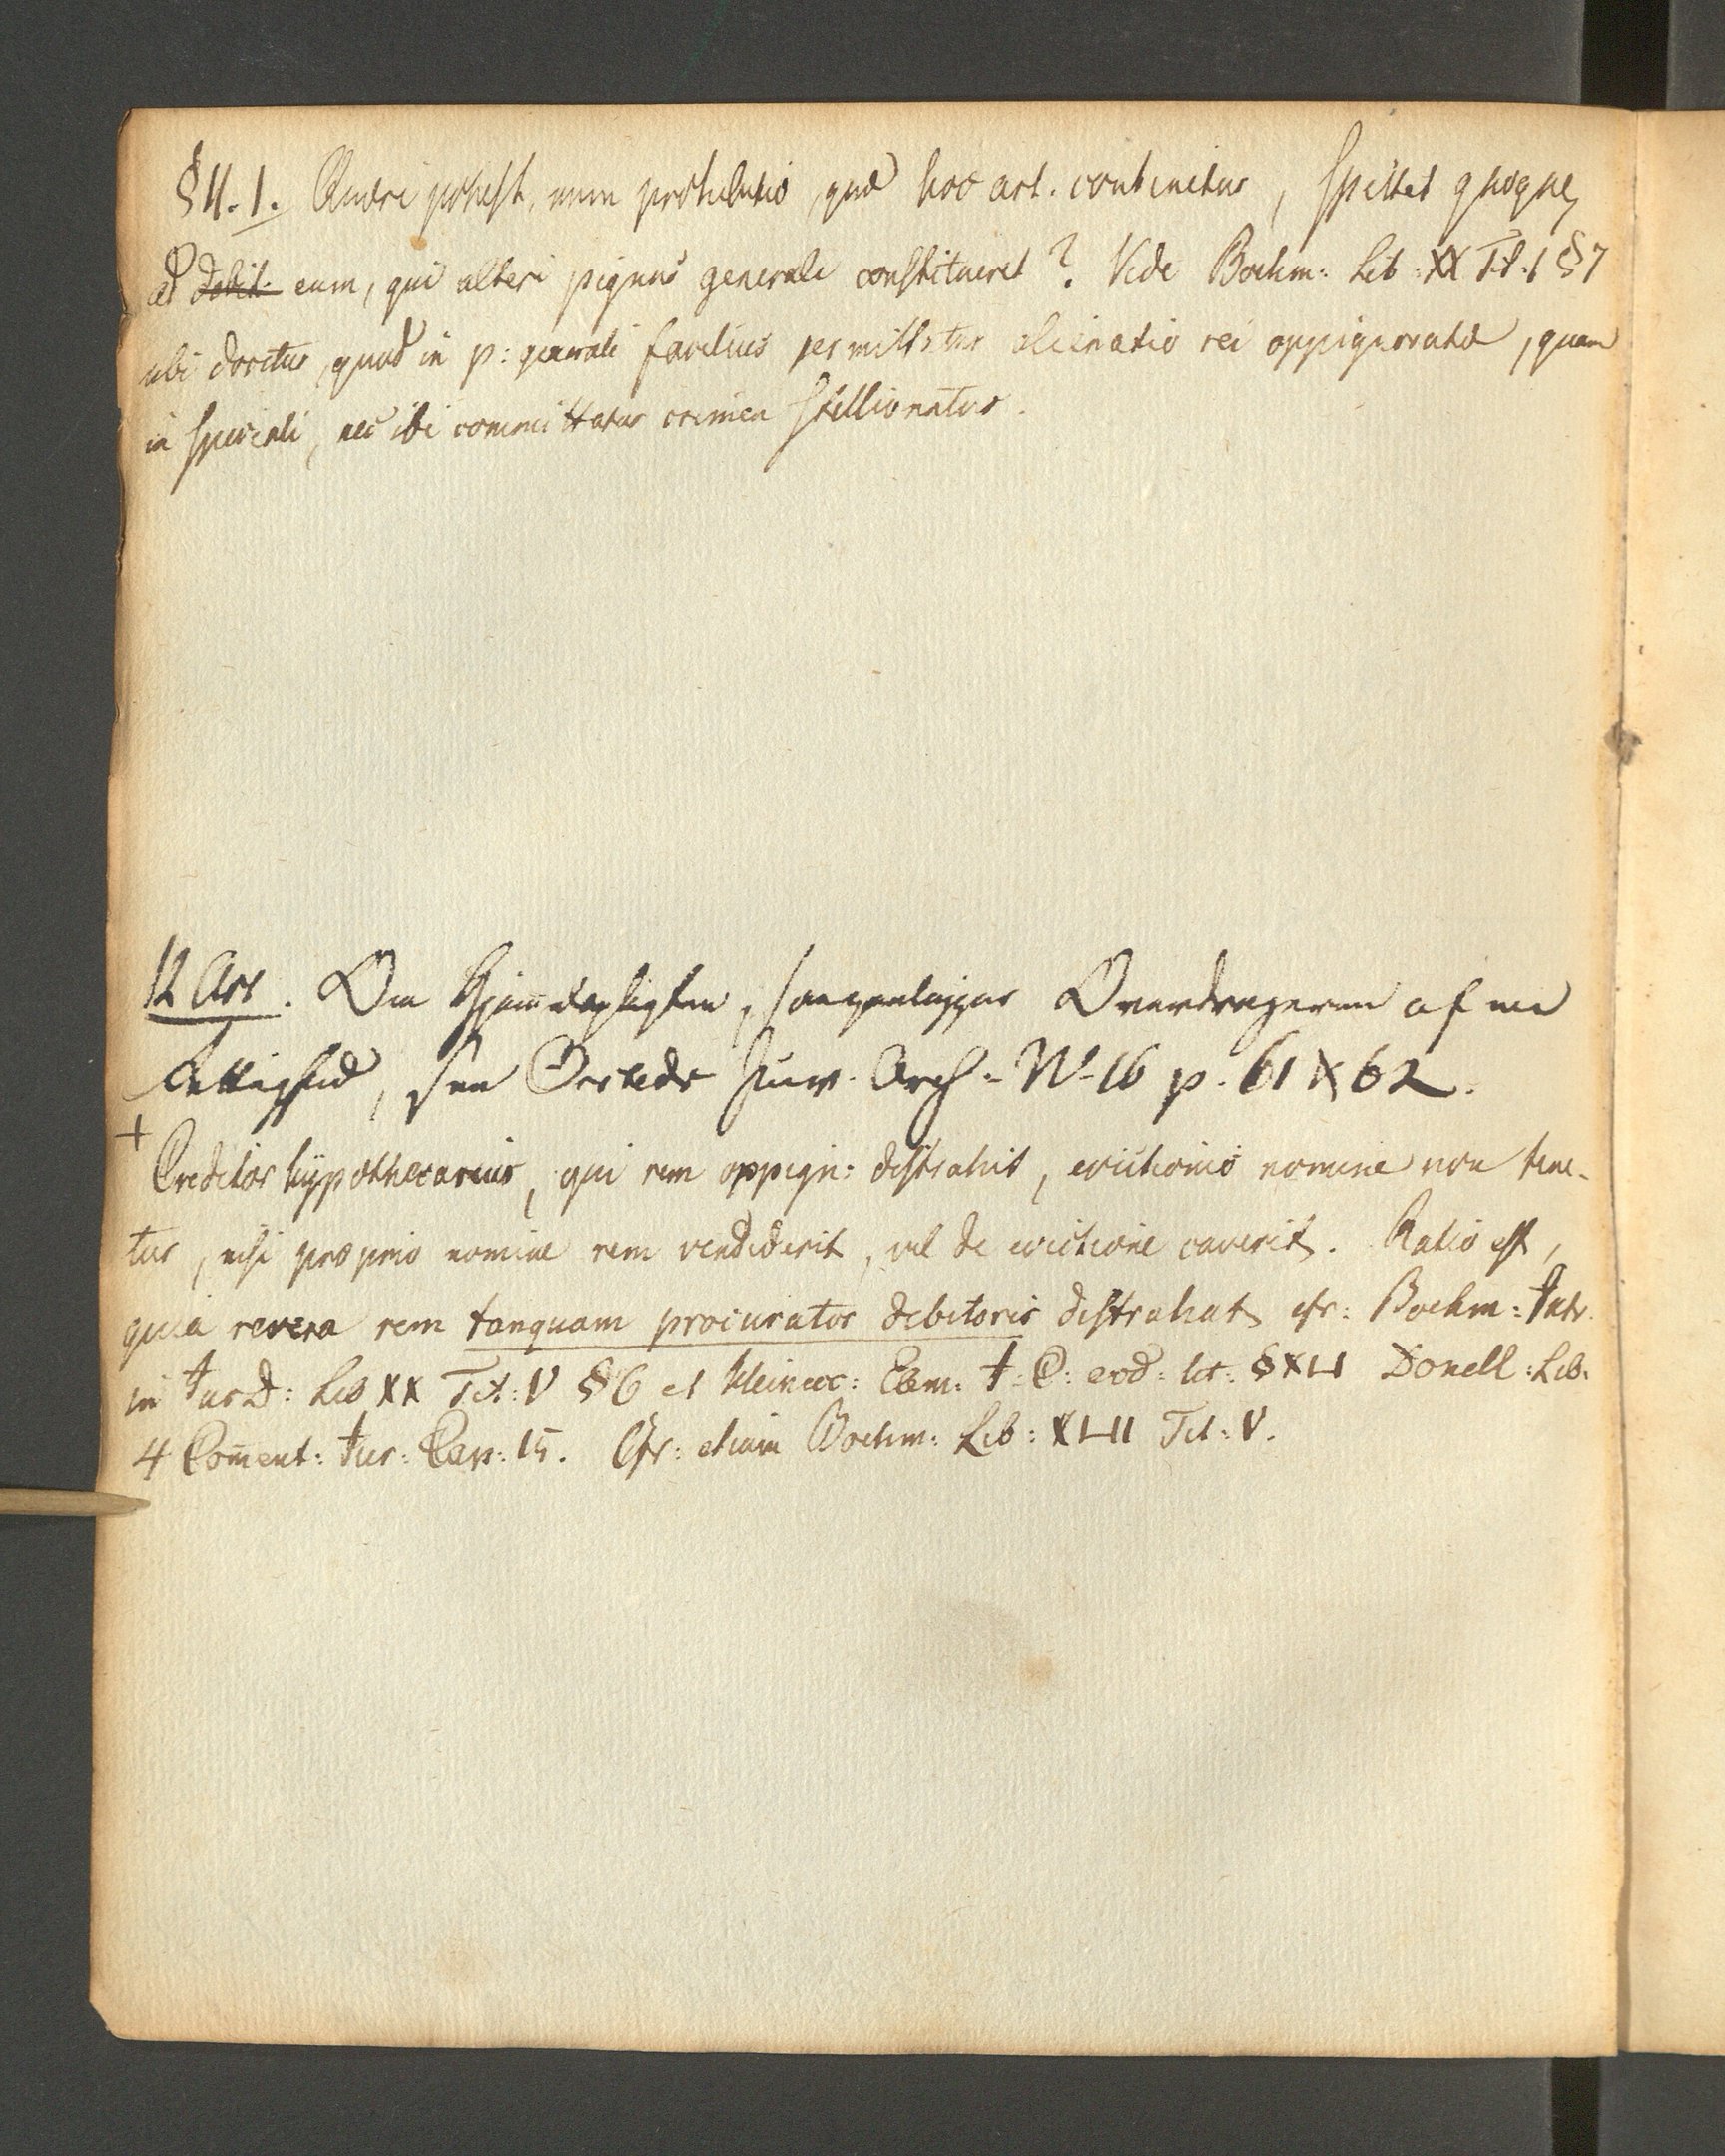 § 11. 1. Quæri potest, num prohibitio, quæ hoc art. continetur, spectet quoque
ad debit. eum, qui alteri pignus generale constitueret? Vide Boehm: Lib: XX Tit: 1 § 7
ubi docetur, quod in p: generali facilius permittatur alienatio rei oppignoratæ, quam
in speciali, nec ibi committatur crimen stellionatus.
12 Art. Om Hjemmelspligten, som paaligger Overdrageren af en
Rettighed, see Ørsteds Jur. Arch: N° 16 p. 61 & 62.
+
Creditor hypothecarius, qui rem oppign: distrahit, evictionis nomine non tene-
tur, nisi proprio nomine rem vendiderit, vel de evictione caverit. Ratio est,
quia revera rem tanquam procurator debitoris distrahat cfr: Boehm: Intr.
in Jus D: Lib XX Tit: V § 6 et Heinecc: Elem: J: C: eod: tit: § XLI Donell: Lib.
4 Coment: Jur: Cap: 15. Cfr: etiam Boehm: Lib: XLII Tit: V.